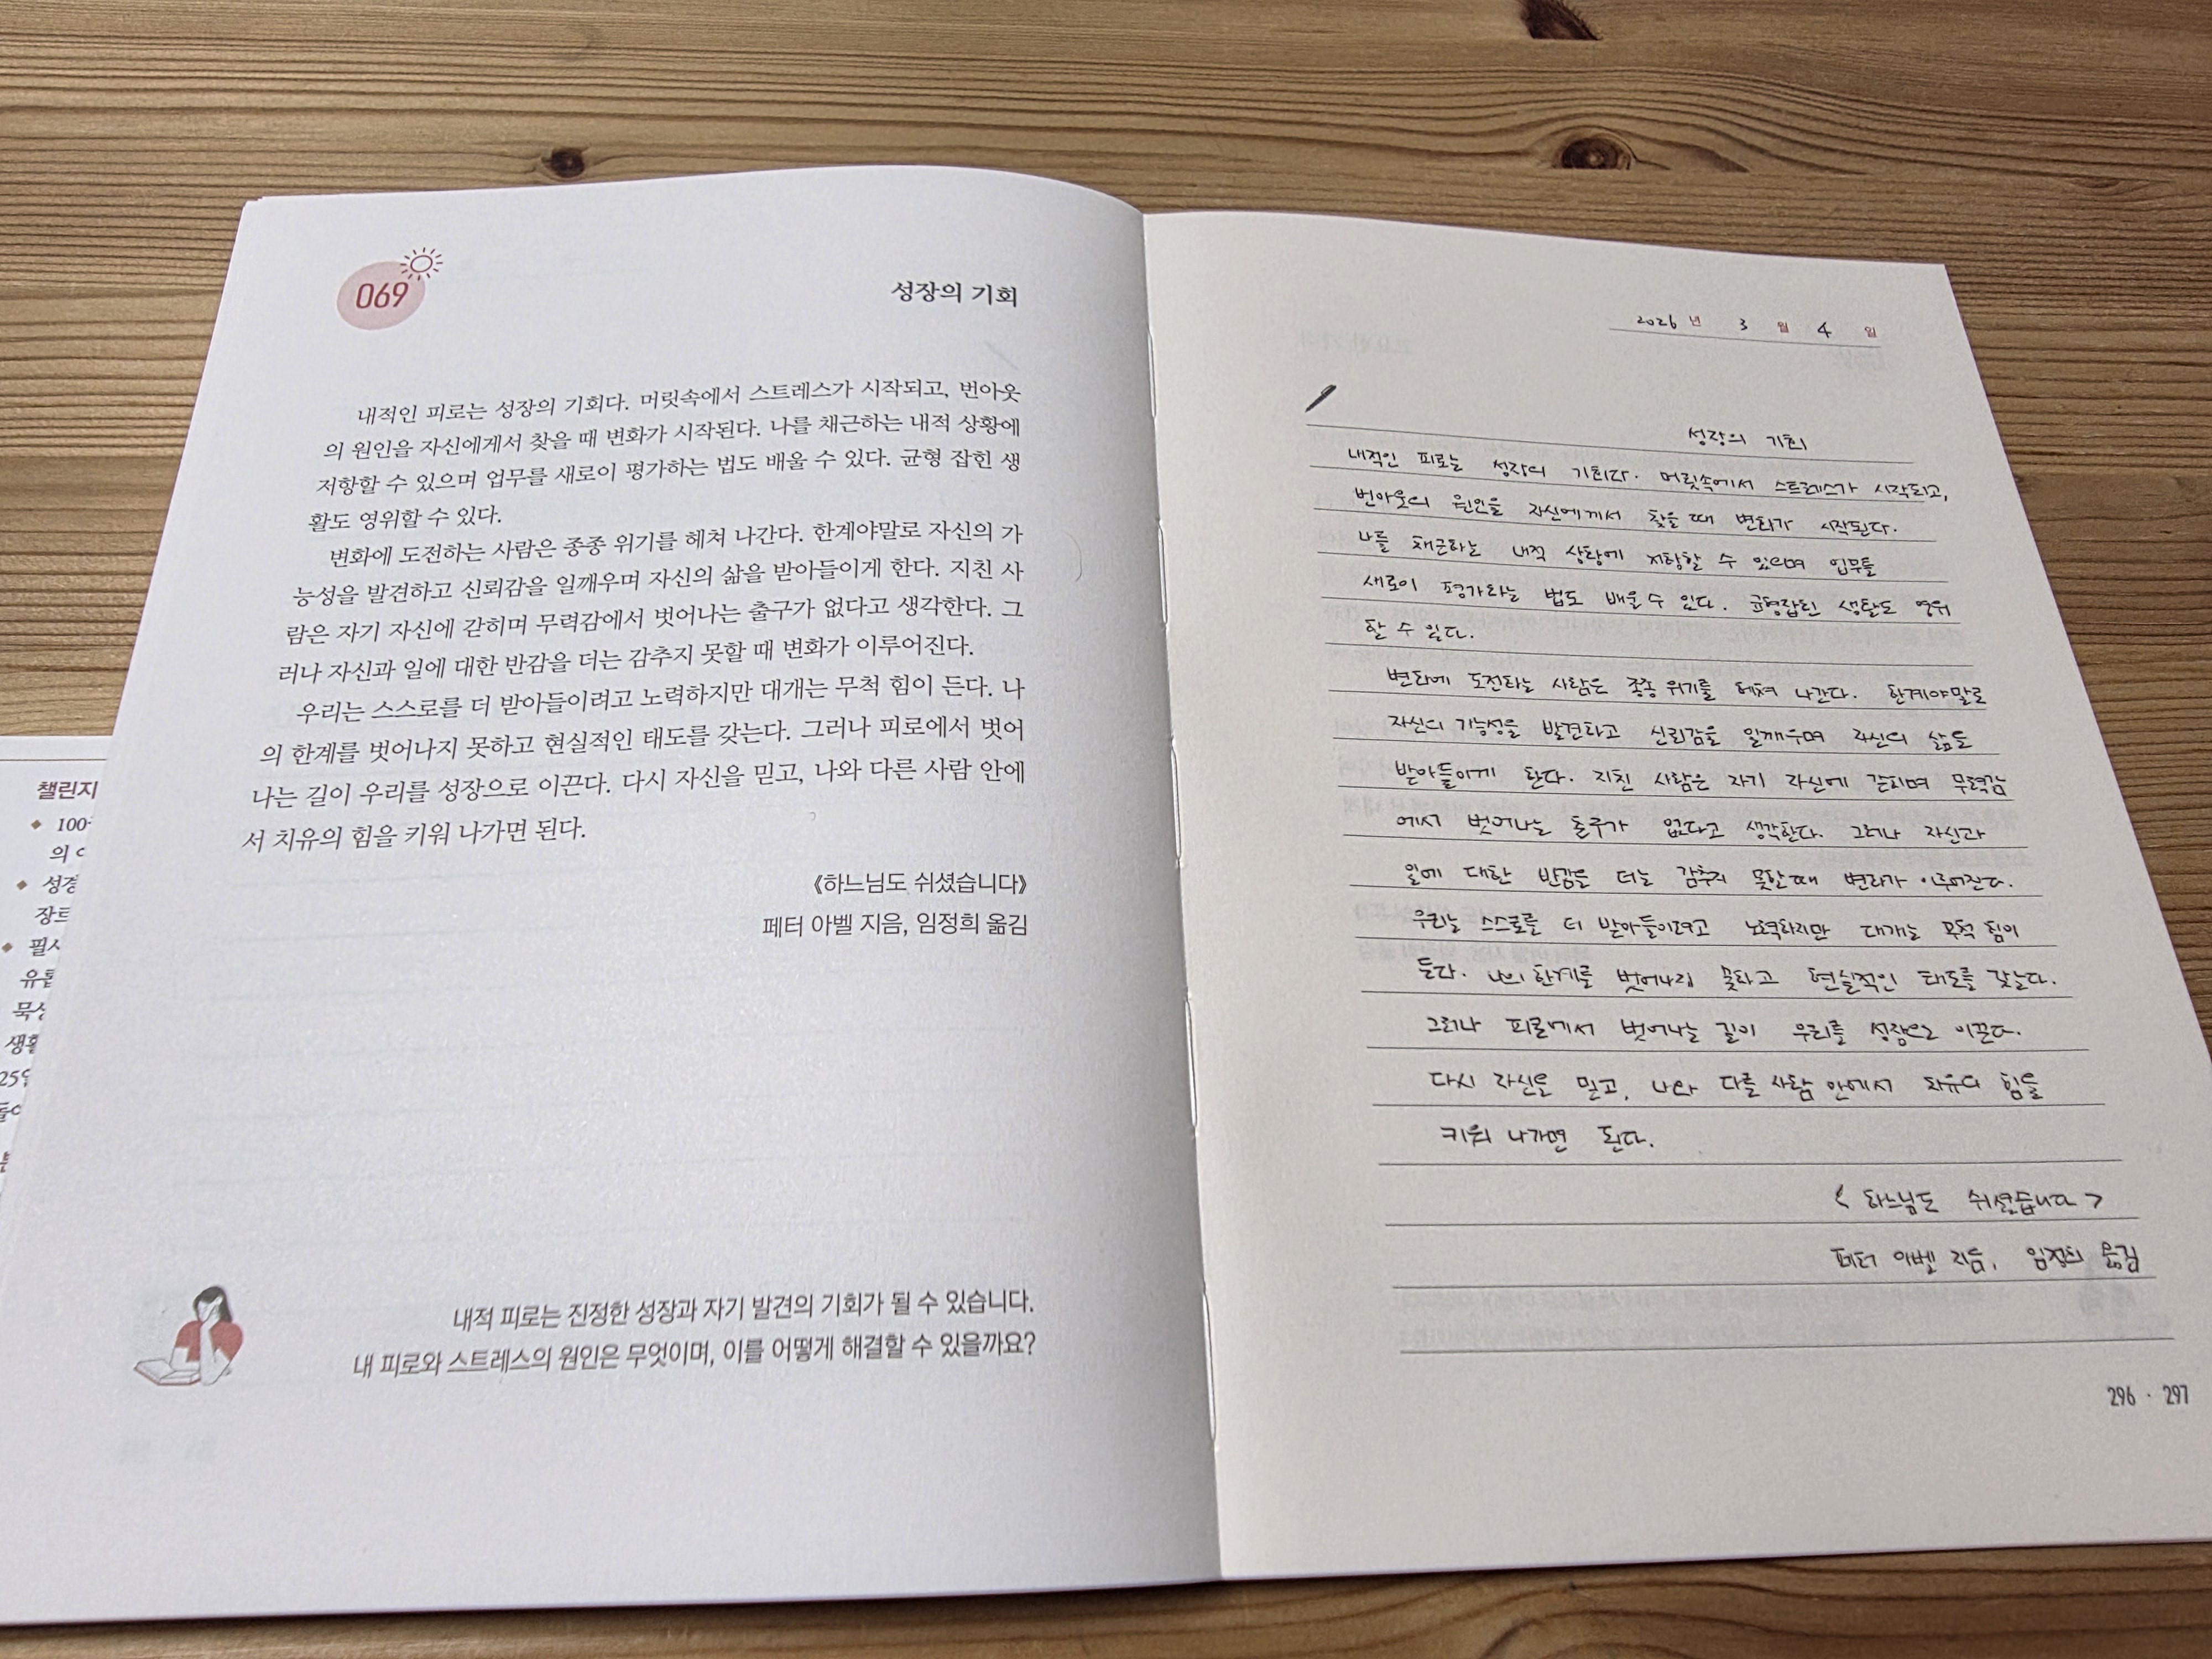 069
성장의 기회
내적인 피로는 성장의 기회다. 머릿속에서 스트레스가 시작되고, 번아웃
의 원인을 자신에게서 찾을 때 변화가 시작된다. 나를 채근하는 내적 상황에
저항할 수 있으며 업무를 새로이 평가하는 법도 배울 수 있다. 균형 잡힌 생
활도 영위할 수 있다.
변화에 도전하는 사람은 종종 위기를 헤쳐 나간다. 한계야말로 자신의 가
능성을 발견하고 신뢰감을 일깨우며 자신의 삶을 받아들이게 한다. 지친 사
람은 자기 자신에 갇히며 무력감에서 벗어나는 출구가 없다고 생각한다. 그
러나 자신과 일에 대한 반감을 더는 감추지 못할 때 변화가 이루어진다.
우리는 스스로를 더 받아들이려고 노력하지만 대개는 무척 힘이 든다. 나
의 한계를 벗어나지 못하고 현실적인 태도를 갖는다. 그러나 피로에서 벗어
나는 길이 우리를 성장으로 이끈다. 다시 자신을 믿고, 나와 다른 사람 안에
서 치유의 힘을 키워 나가면 된다.
《하느님도 쉬셨습니다》
페터 아벨 지음, 임정희 옮김
내적 피로는 진정한 성장과 자기 발견의 기회가 될 수 있습니다.
내 피로와 스트레스의 원인은 무엇이며, 이를 어떻게 해결할 수 있을까요?
챌린지
100
의
성경
필사
묵상
2026 년 3 월 4 일
성장의 기회
내적인 피로는 성장의 기회다. 머릿속에서 스트레스가 시작되고,
번아웃의 원인을 자신에게서 찾을 때 변화가 시작된다.
나를 채근하는 내적 상황에 저항할 수 있으며 업무를
새로이 평가하는 법도 배울 수 있다. 균형잡힌 생활도 영위
할 수 있다.
변화에 도전하는 사람은 종종 위기를 헤쳐 나간다. 한계야말로
자신의 가능성을 발견하고 신뢰감을 일깨우며 자신의 삶을
받아들이게 한다. 지친 사람은 자기 자신에 갇히며 무력감
에서 벗어나는 출구가 없다고 생각한다. 그러나 자신과
일에 대한 반감을 더는 감추지 못할 때 변화가 이루어진다.
우리는 스스로를 더 받아들이려고 노력하지만 대개는 무척 힘이
든다. 나의 한계를 벗어나지 못하고 현실적인 태도를 갖는다.
그러나 피로에서 벗어나는 길이 우리를 성장으로 이끈다.
다시 자신을 믿고, 나와 다른 사람 안에서 치유의 힘을
키워 나가면 된다.
< 하느님도 쉬셨습니다 >
페터 아벨 지음, 임정희 옮김
296 · 297